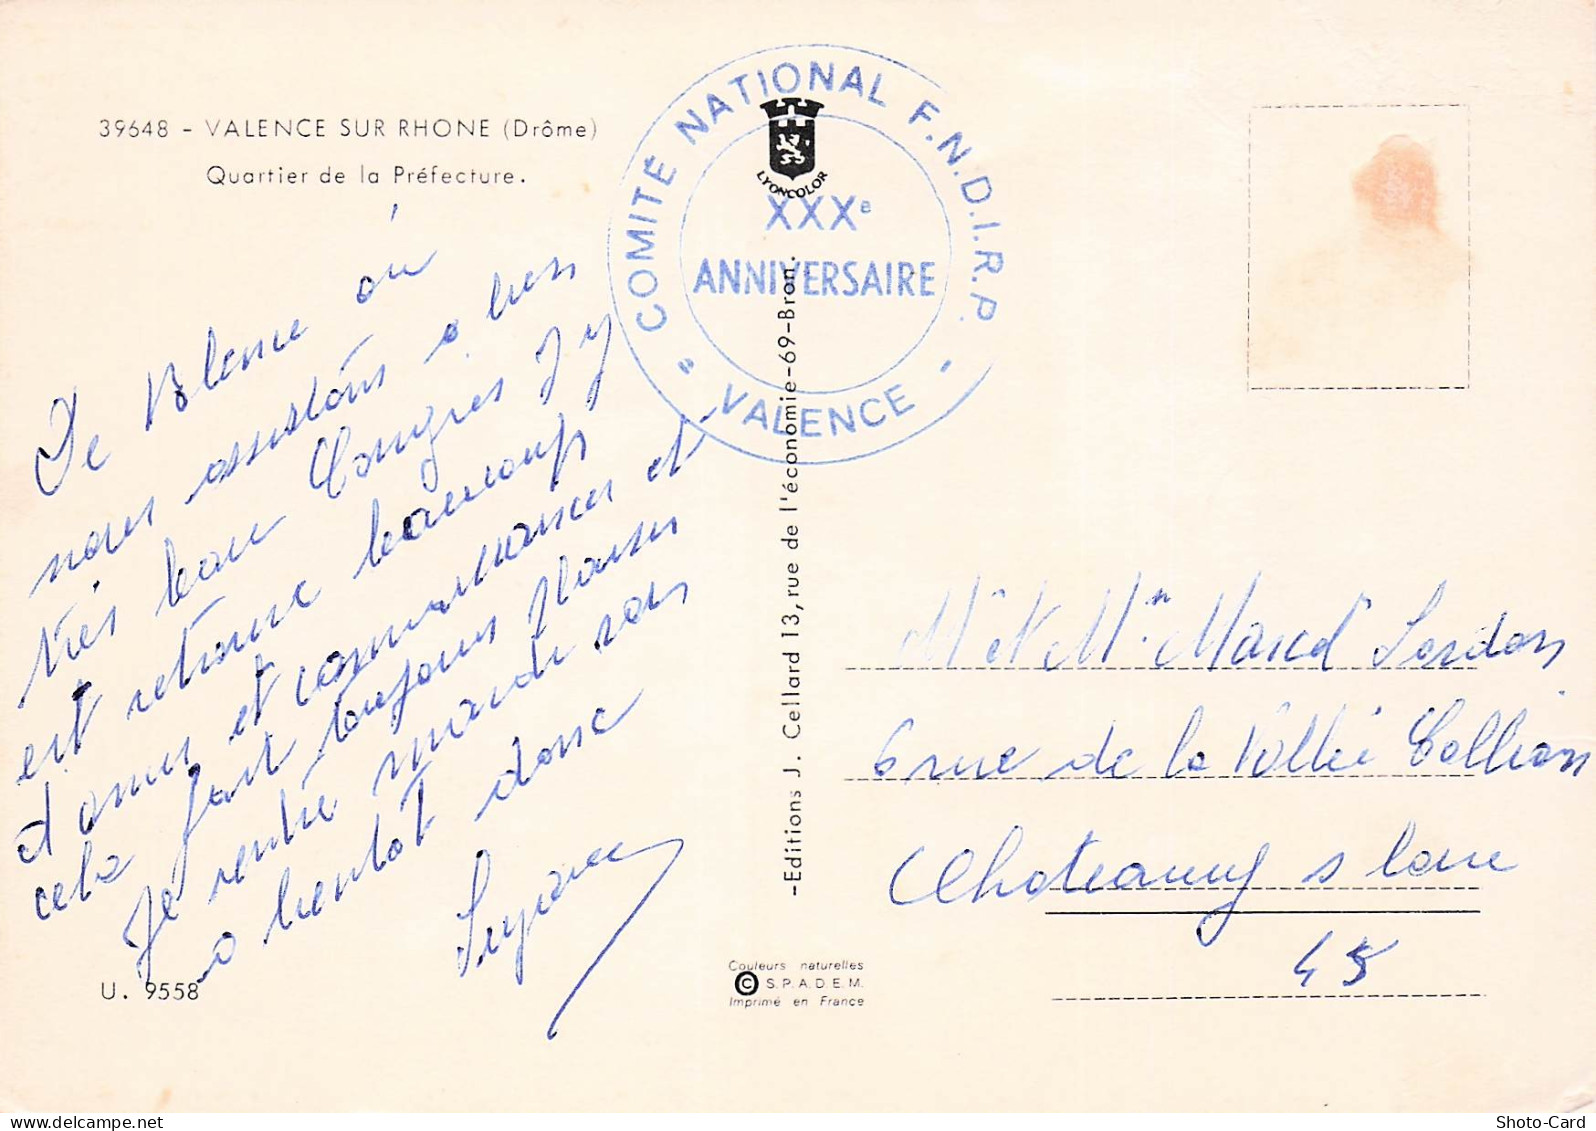 39648 - VALENCE SUR RHONE (Drôme)
Quartier de la Préfecture.
COMITÉ NATIONAL F.N.D.I.R.P.
XXXe
ANNIVERSAIRE
" VALENCE "
LYONCOLOR
De Valence où
nous assistons à un
très beau Congrès j'y
est retrouvé beaucoup
d'amis et connaissances et
cela fait toujours plaisir
Je rentre mardi
a bientot donc
U. 9558
-Editions J. Cellard 13, rue de l'économie-69-Bron.
Couleurs naturelles
© S.P.A.D.E.M.
Imprimé en France
Mr et Mme Marcel
6 rue de la Vallée
Chateauneuf s Loire
45
Shoto-Card
www.delcampe.net